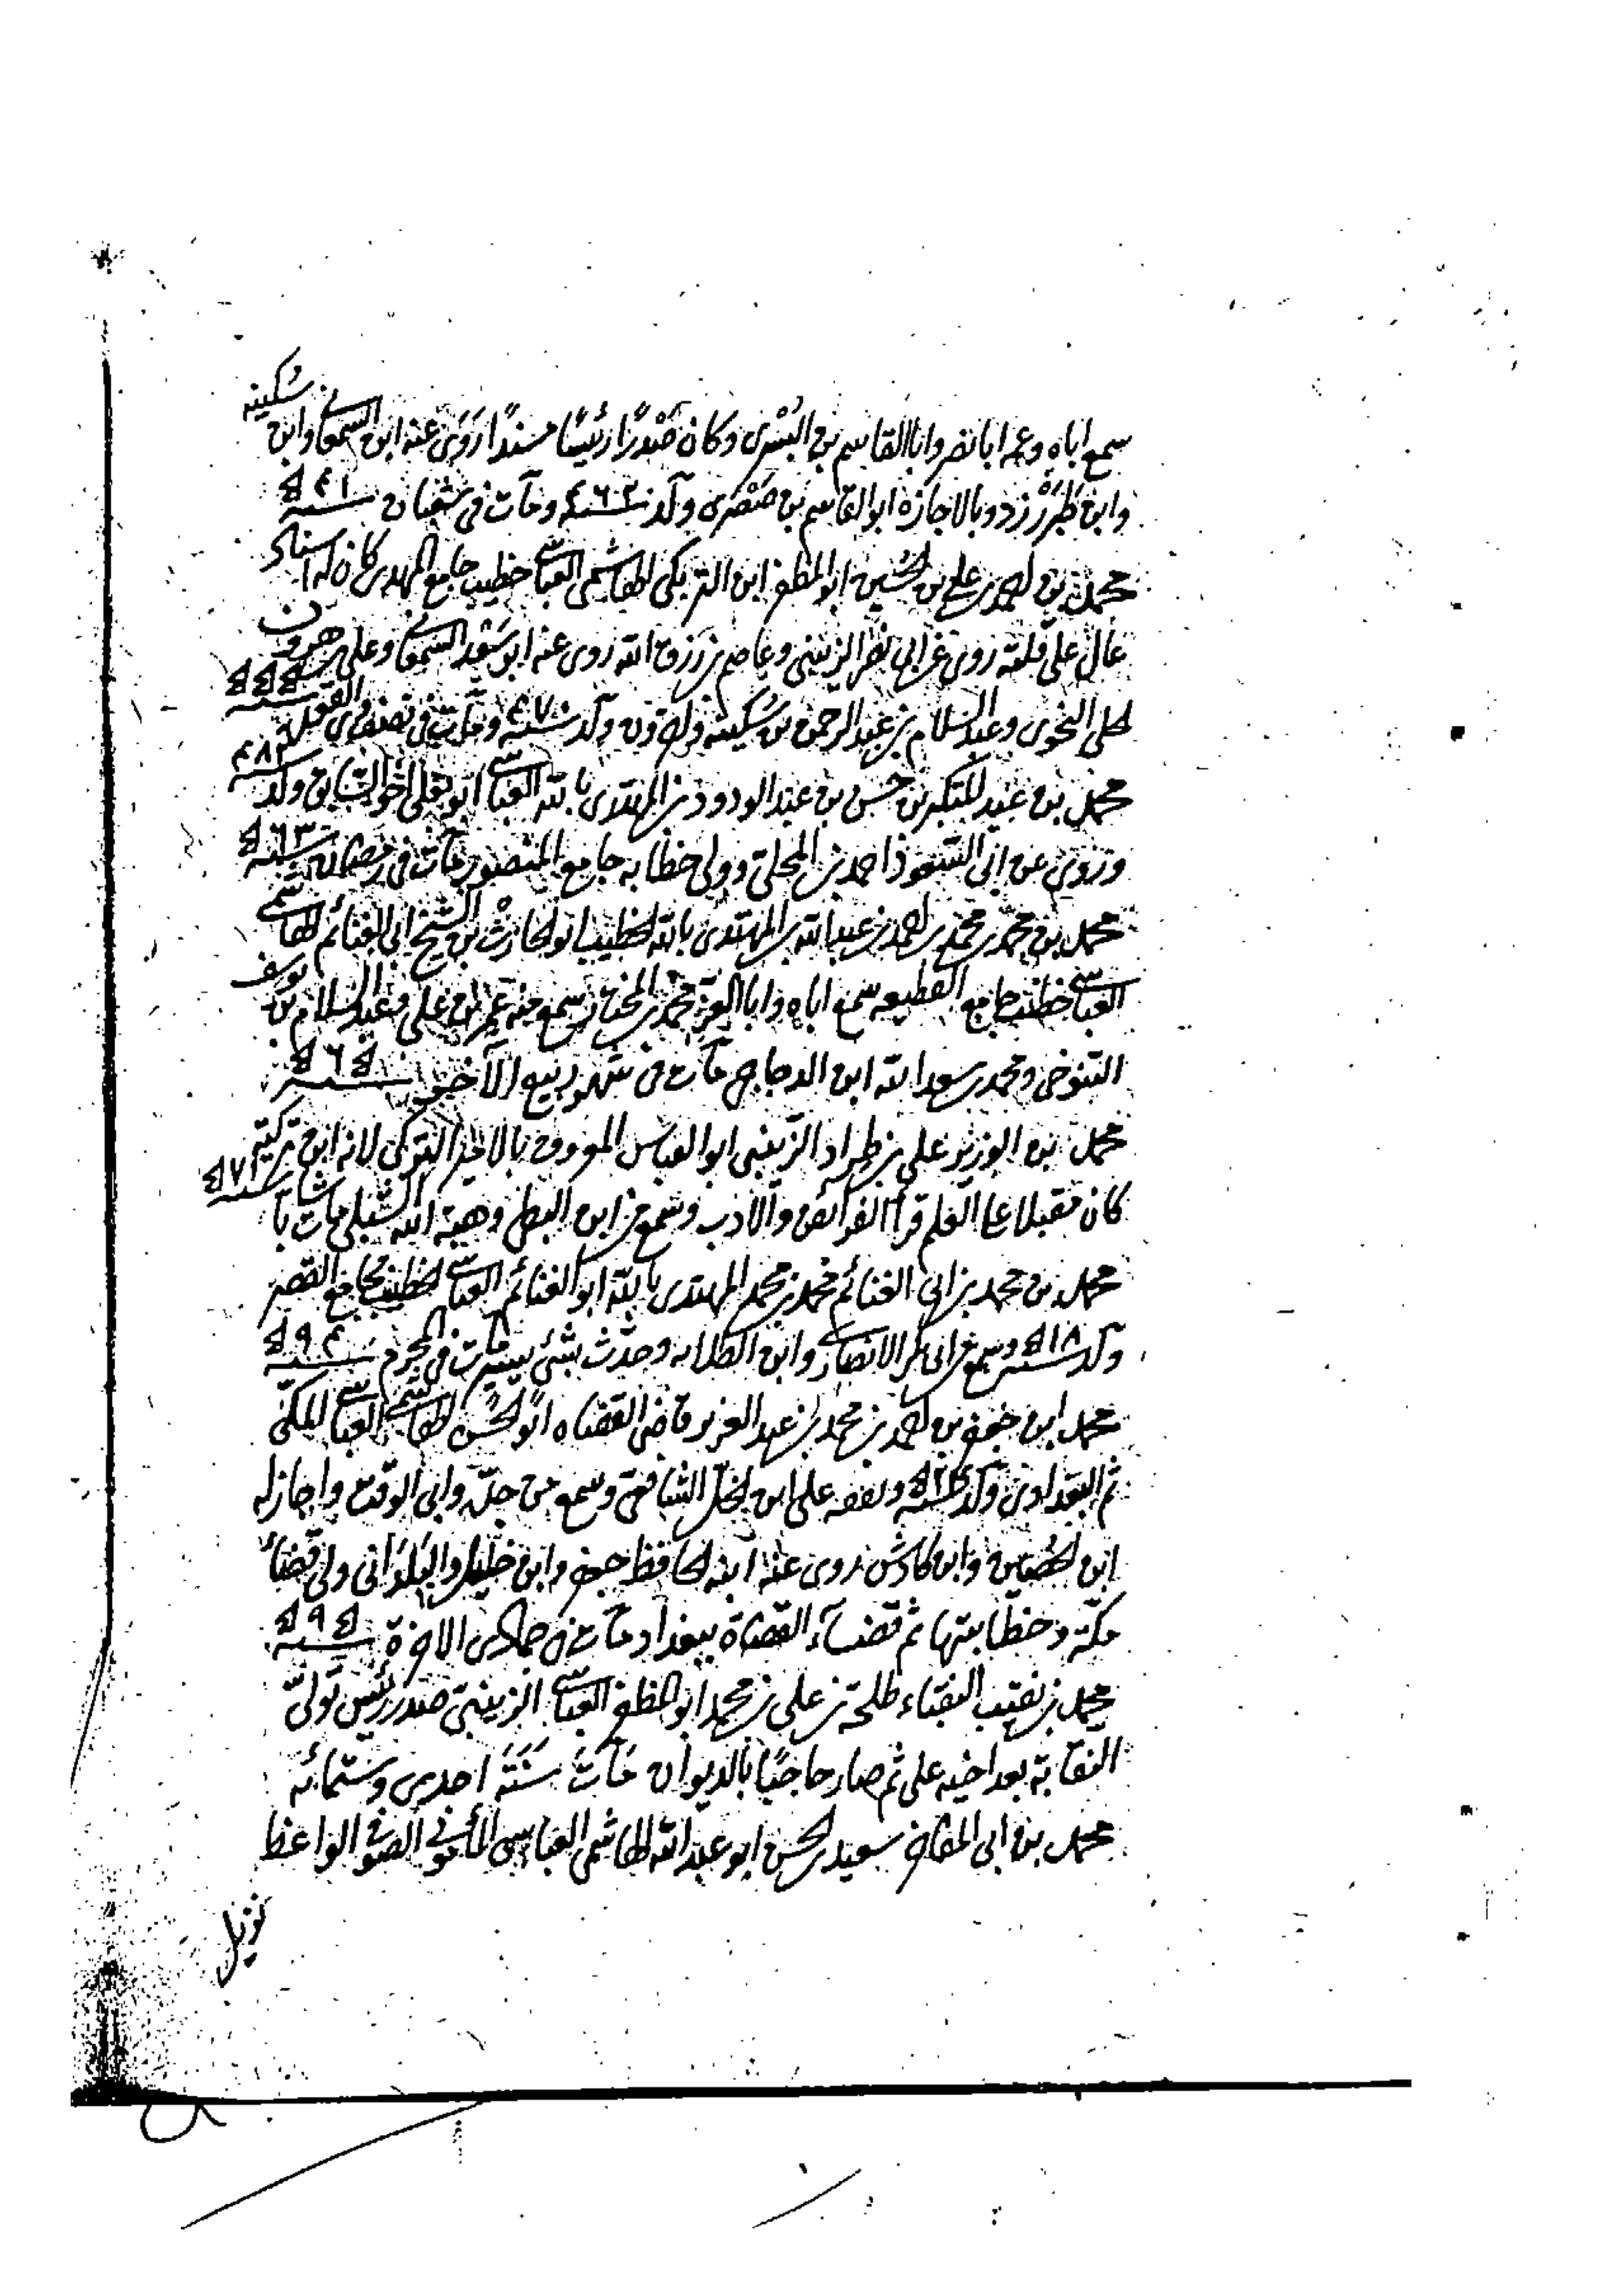 سمع اباه وعمه ابا نصر وابا القاسم بن البُسْرى وكان صَدْرًا رئيسًا مسندًا رَوَى عنه ابن السمعانى وابن سُكينه
وابن طَبَرْزد وبالاجازه ابو القاسم بن صَصْرَى ولد سنة ٤٦٢ ومات فى شعبان سنة ٥٤١
محمد بن احمد بن على بن الحسين ابو المظفر ابن التريكى الهاشمى العباسى خطيب جامع المهدى كان له اسناد
عال على قلته روى عن ابى نصر الزينبى وعاصم بن رزق الله روى عنه ابو سَعْد السمعانى وعلى بن هرون
الحلى النحوى وعبد السلام بن عبد الرحمن بن سُكينه وآخرون ولد سنة ٤٧٠ ومات فى نصف ذى القعدة سنة ٥٥٥
محمد بن عبد المتكبر بن حسن بن عبد الودود بن المهتدى بالله العباسى ابو يعلى اخو السابق ولد سنة ٤٨٣
وروى عن ابى السعود احمد بن المجلى وولى خطابه جامع المنصور مات فى رمضان سنة ٥٦٣
محمد بن محمد بن محمد بن احمد بن عبد الله بن المهتدى بالله الخطيب ابو الحارث بن الشيخ ابى الغنائم الهاشمى
العباسى خطيب جامع القطيعه سمع اباه وابا العز محمد بن المختار سمع منه عمر بن على وعبد السلام بن يوسف
التنوخى ومحمد بن سعد الله ابن الدجاجى مات فى شهر ربيع الآخر سنة ٥٦٥
محمد بن الوزير على بن طراد الزينبى ابو العباس المعروف بالامير التركى لانه ابن تركيّه
كان مقبلا على العلم قرأ الفرائض والأدب وسمع من ابن البطى وهبة الله الشبلى مات شابًا سنة ٥٧١
محمد بن محمد بن ابى الغنائم محمد بن محمد المهتدى بالله ابو الغنائم العباسى الخطيب بجامع القصر
ولد سنة ٥١٨ وسمع من ابى بكر الانصارى وابن الطلايه وحدّث بشئ يسير مات فى المحرم سنة ٥٩٤
محمد ابن جعفر بن احمد بن محمد بن عبد العزيز قاضى القضاه ابو الحسن الهاشمى العباسى المكىّ
ثم البغدادى ولد سنة وتفقه على ابن الخل الشافعى وسمع من جدّه وابى الوقت واجاز له
ابن الحُصَين وابن كادش روى عنه ابنه الحافظ جعفر وابن خليل واليَلدَانى ولى قضاء
مكّة وخطابتها ثم قضاء القضاة ببغداد مات فى جمادى الاخرة سنة ٥٩٥
محمد بن نقيب النقباء طلحة بن على بن محمد ابو المظفر العباسى الزينبىّ صدر رئيس تولىّ
النقابة بعد اخيه على ثم صار حاجبًا بالديوان مَاتَ سَنَة احدى وستمائه
محمد بن ابى المفاخر سعيد بن الحسن ابو عبد الله الهاشمى العباسى المأمونى الصوفى الواعظ
نزيل